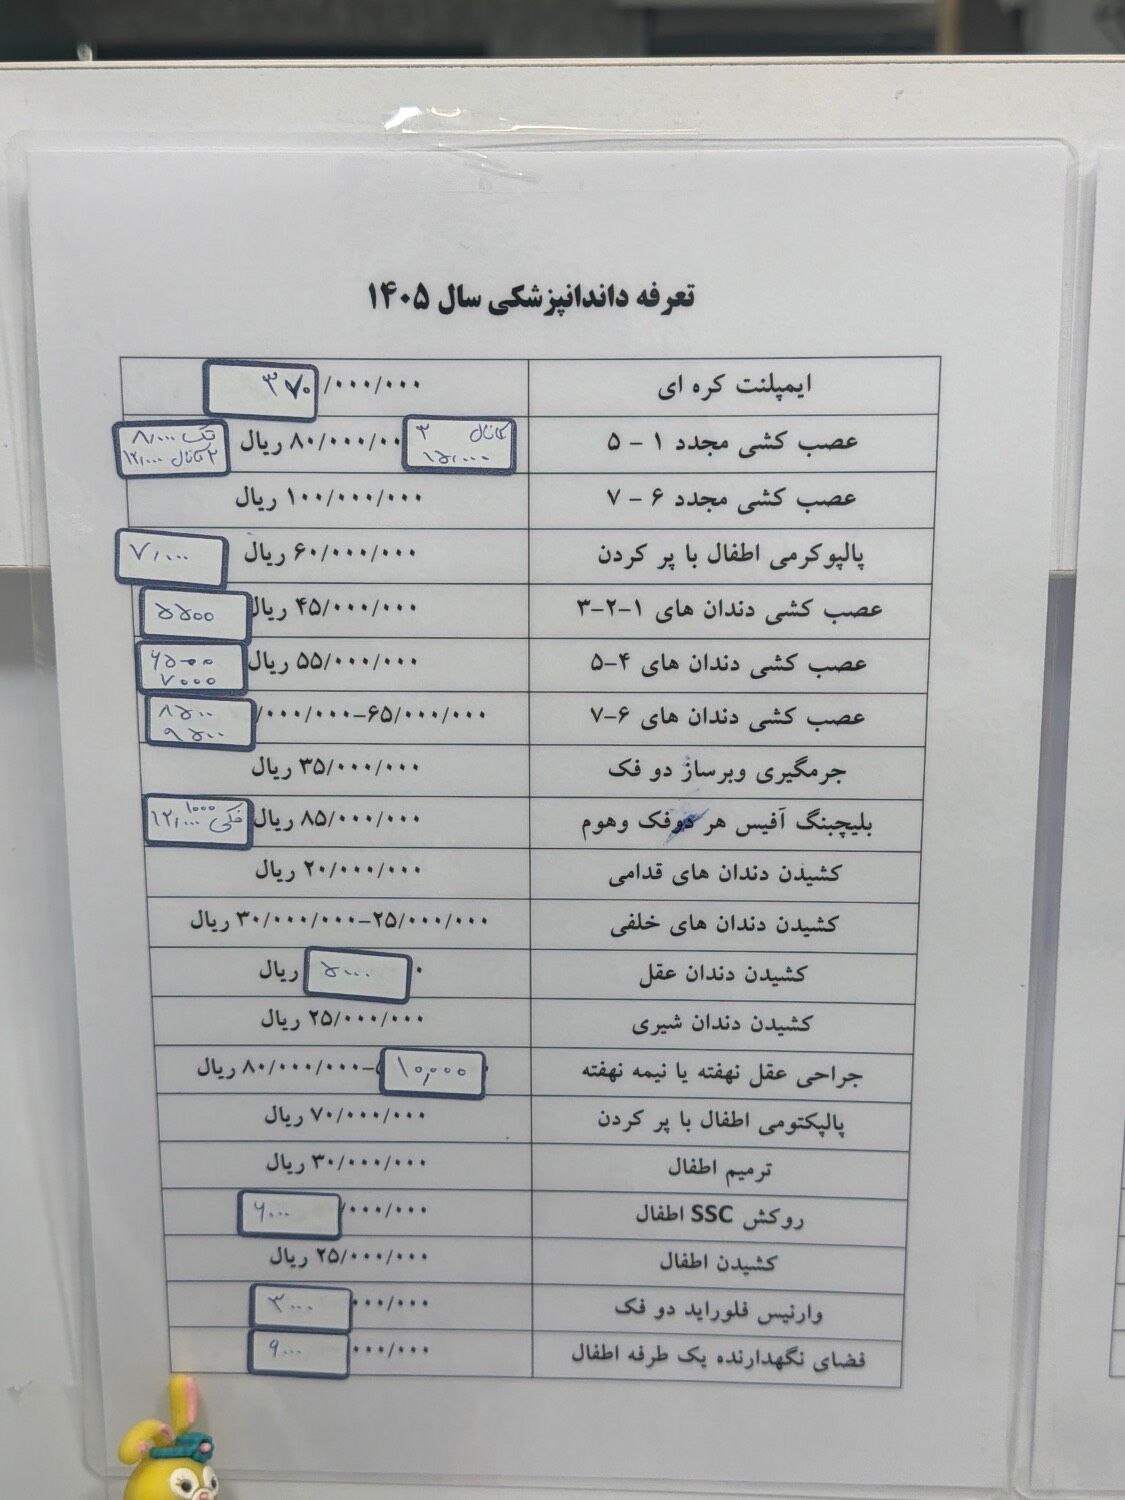 تعرفه داندانپزشکی سال ۱۴۰۵
ایمپلنت کره ای ۳۷۰/۰۰۰/۰۰۰
عصب کشی مجدد ۱ - ۵ کانال ۳ ۱۵,۰۰۰ ۸۰/۰۰۰/۰۰ ریال تک ۸,۰۰۰ ۲ کانال ۱۲,۰۰۰
عصب کشی مجدد ۶ - ۷ ۱۰۰/۰۰۰/۰۰۰ ریال
پالپوکرمی اطفال با پر کردن ۶۰/۰۰۰/۰۰۰ ریال ۷,۰۰۰
عصب کشی دندان های ۱-۲-۳ ۴۵/۰۰۰/۰۰۰ ریال ۵۵۰۰
عصب کشی دندان های ۴-۵ ۵۵/۰۰۰/۰۰۰ ریال ۶۵۰۰ ۷۰۰۰
عصب کشی دندان های ۶-۷ ۶۵/۰۰۰/۰۰۰-/۰۰۰/۰۰۰ ۸۵۰۰ ۹۵۰۰
جرمگیری وبرساژ دو فک ۳۵/۰۰۰/۰۰۰ ریال
بلیچبنگ آفیس هر دوفک وهوم ۸۵/۰۰۰/۰۰۰ ریال فکی ۱۰۰۰ ۱۲,۰۰۰
کشیدن دندان های قدامی ۲۰/۰۰۰/۰۰۰ ریال
کشیدن دندان های خلفی ۲۵/۰۰۰/۰۰۰-۳۰/۰۰۰/۰۰۰ ریال
کشیدن دندان عقل ۰ ۵۰۰۰ ریال
کشیدن دندان شیری ۲۵/۰۰۰/۰۰۰ ریال
جراحی عقل نهفته یا نیمه نهفته ۱۰,۰۰۰ -۸۰/۰۰۰/۰۰۰ ریال
پالپکتومی اطفال با پر کردن ۷۰/۰۰۰/۰۰۰ ریال
ترمیم اطفال ۳۰/۰۰۰/۰۰۰ ریال
روکش SSC اطفال /۰۰۰/۰۰۰ ۶۰۰۰
کشیدن اطفال ۲۵/۰۰۰/۰۰۰ ریال
وارنیس فلوراید دو فک ۰۰۰/۰۰۰ ۳۰۰۰
فضای نگهدارنده یک طرفه اطفال ۰۰۰/۰۰۰ ۹۰۰۰